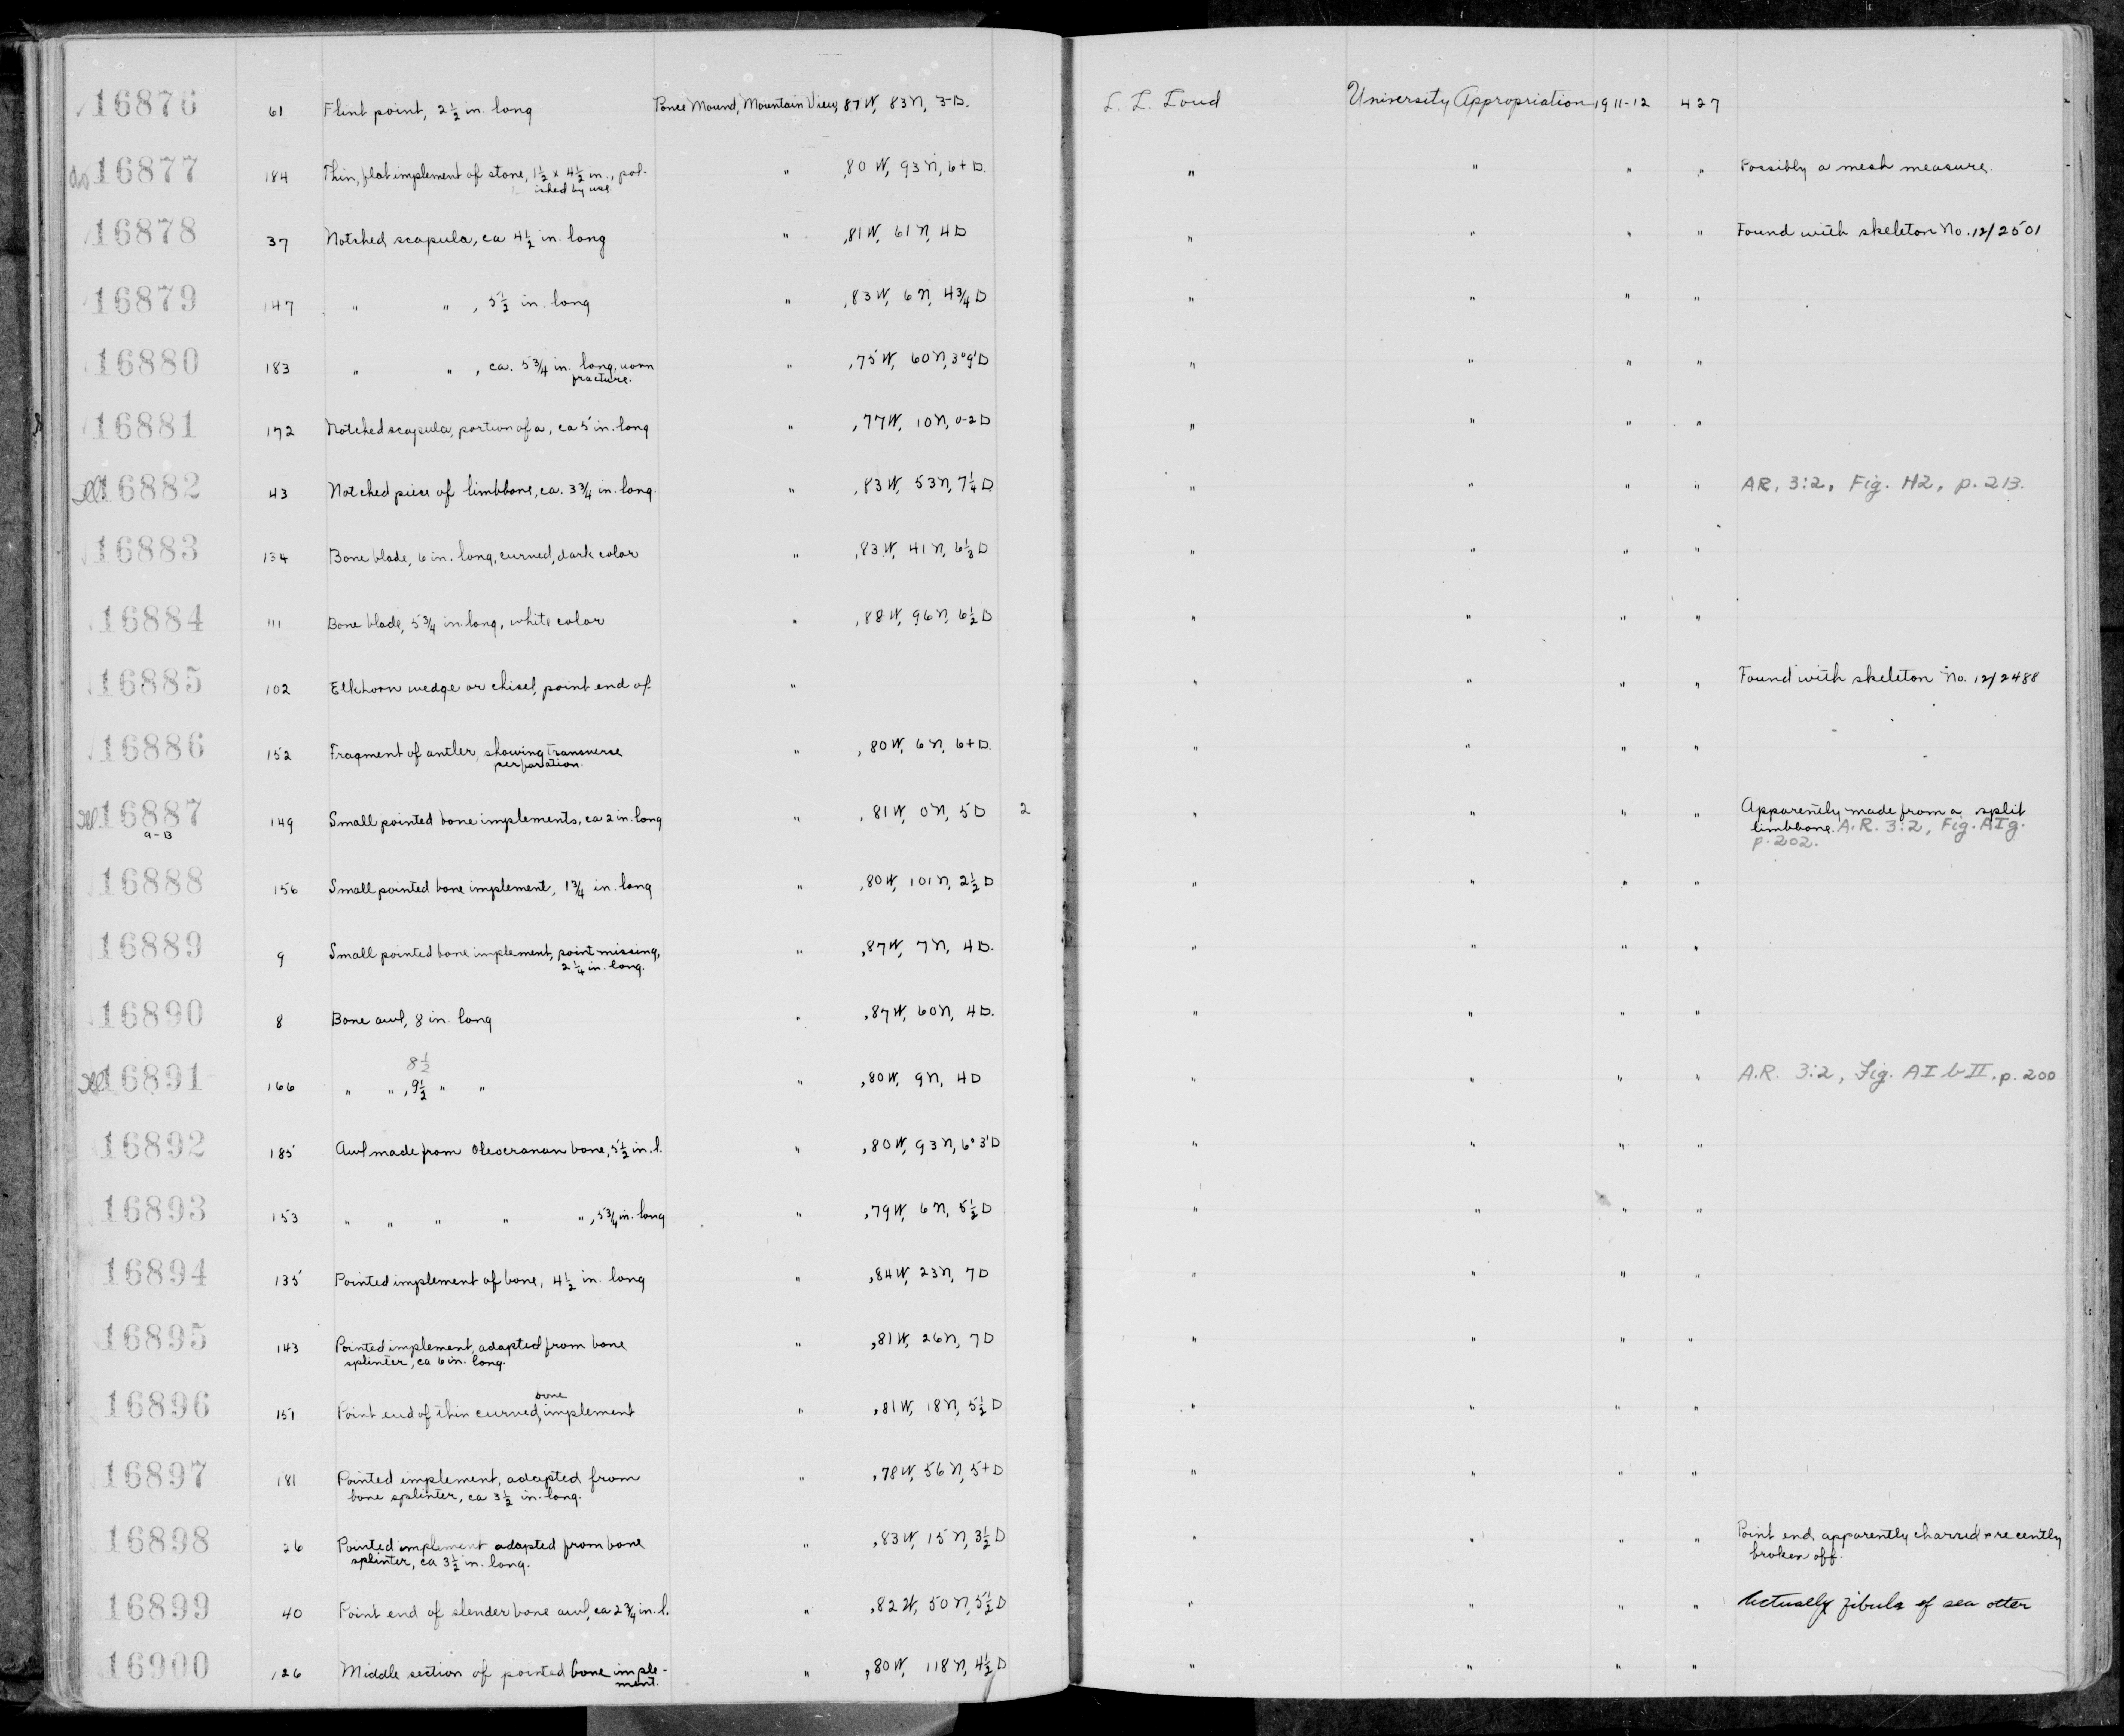 16876 61 Flint point, 2 1/2 in. long Ponce Mound, Mountain View, 87 W, 83 N, 3-D. L. L. Loud University Appropriation 1911-12 427
16877 184 Thin, flat implement of stone, 1 1/2 x 4 1/2 in., pol- " ,80 W, 93 N, 6+ D. " " " " Possibly a mesh measure.
ished by use.
16878 37 Notched scapula, ca 4 1/2 in. long " ,81 W, 61 N, 4 D " " " " Found with skeleton No. 12/2501
16879 147 " " , 5 1/2 in. long " ,83 W, 6 N, 4 3/4 D " " " "
16880 183 " " , ca. 5 3/4 in. long, worn " ,75 W, 60 N, 3°9' D " " " "
fracture.
16881 172 Notched scapula, portion of a, ca 5 in. long " ,77 W, 10 N, 0-2 D " " " "
16882 43 Notched piece of limbbone, ca. 3 3/4 in. long. " ,83 W, 53 N, 7 1/4 D " " " " AR. 3:2. Fig. H2, p. 213.
16883 134 Bone blade, 6 in. long, curved, dark color " ,83 W, 41 N, 6 1/3 D " " " "
16884 111 Bone blade, 5 3/4 in. long, white color " ,88 W, 96 N, 6 1/2 D " " " "
16885 102 Elkhorn wedge or chisel, point end of " " " " " Found with skeleton No. 12/2488
16886 152 Fragment of antler, showing transverse " , 80 W, 6 N, 6+ D. " " " "
perforation.
16887 149 Small pointed bone implements, ca 2 in. long " , 81 W, 0 N, 5 D 2 " " " " Apparently made from a split
a-B limbbone. A.R. 3:2, Fig. AIg.
p. 202.
16888 156 Small pointed bone implement, 1 3/4 in. long " ,80 W, 101 N, 2 1/2 D " " " "
16889 9 Small pointed bone implement, point missing, " ,87 W, 7 N, 4 D. " " " "
2 1/4 in. long.
16890 8 Bone awl, 8 in. long " ,87 W, 60 N, 4 D. " " " "
8 1/2
16891 166 " " , 9 1/2 " " " ,80 W, 9 N, 4 D " " " " A.R. 3:2, Fig. AI b II. p. 200
16892 185 Awl made from Oleocranan bone, 5 1/2 in. l. " ,80 W, 93 N, 6°3' D " " " "
16893 153 " " " " " , 5 3/4 in. long " ,79 W, 6 N, 5 1/2 D " " " "
16894 135 Pointed implement of bone, 4 1/2 in. long " ,84 W, 23 N, 7 D " " " "
16895 143 Pointed implement, adapted from bone " ,81 W, 26 N, 7 D " " " "
splinter, ca 6 in. long.
bone
16896 151 Point end of thin curved, implement " ,81 W, 18 N, 5 1/2 D " " " "
16897 181 Pointed implement, adapted from " ,78 W, 56 N, 5+ D " " " "
bone splinter, ca 3 1/2 in. long.
16898 26 Pointed implement adapted from bone " ,83 W, 15 N, 3 1/2 D " " " " Point end apparently charred + recently
splinter, ca 3 1/2 in. long. broken off.
16899 40 Point end of slender bone awl, ca 2 3/4 in. l. " ,82 W, 50 N, 5 1/2 D " " " " Actually fibula of sea otter
16900 126 Middle section of pointed bone imple- " ,80 W, 118 N, 4 1/2 D " " " "
ment.